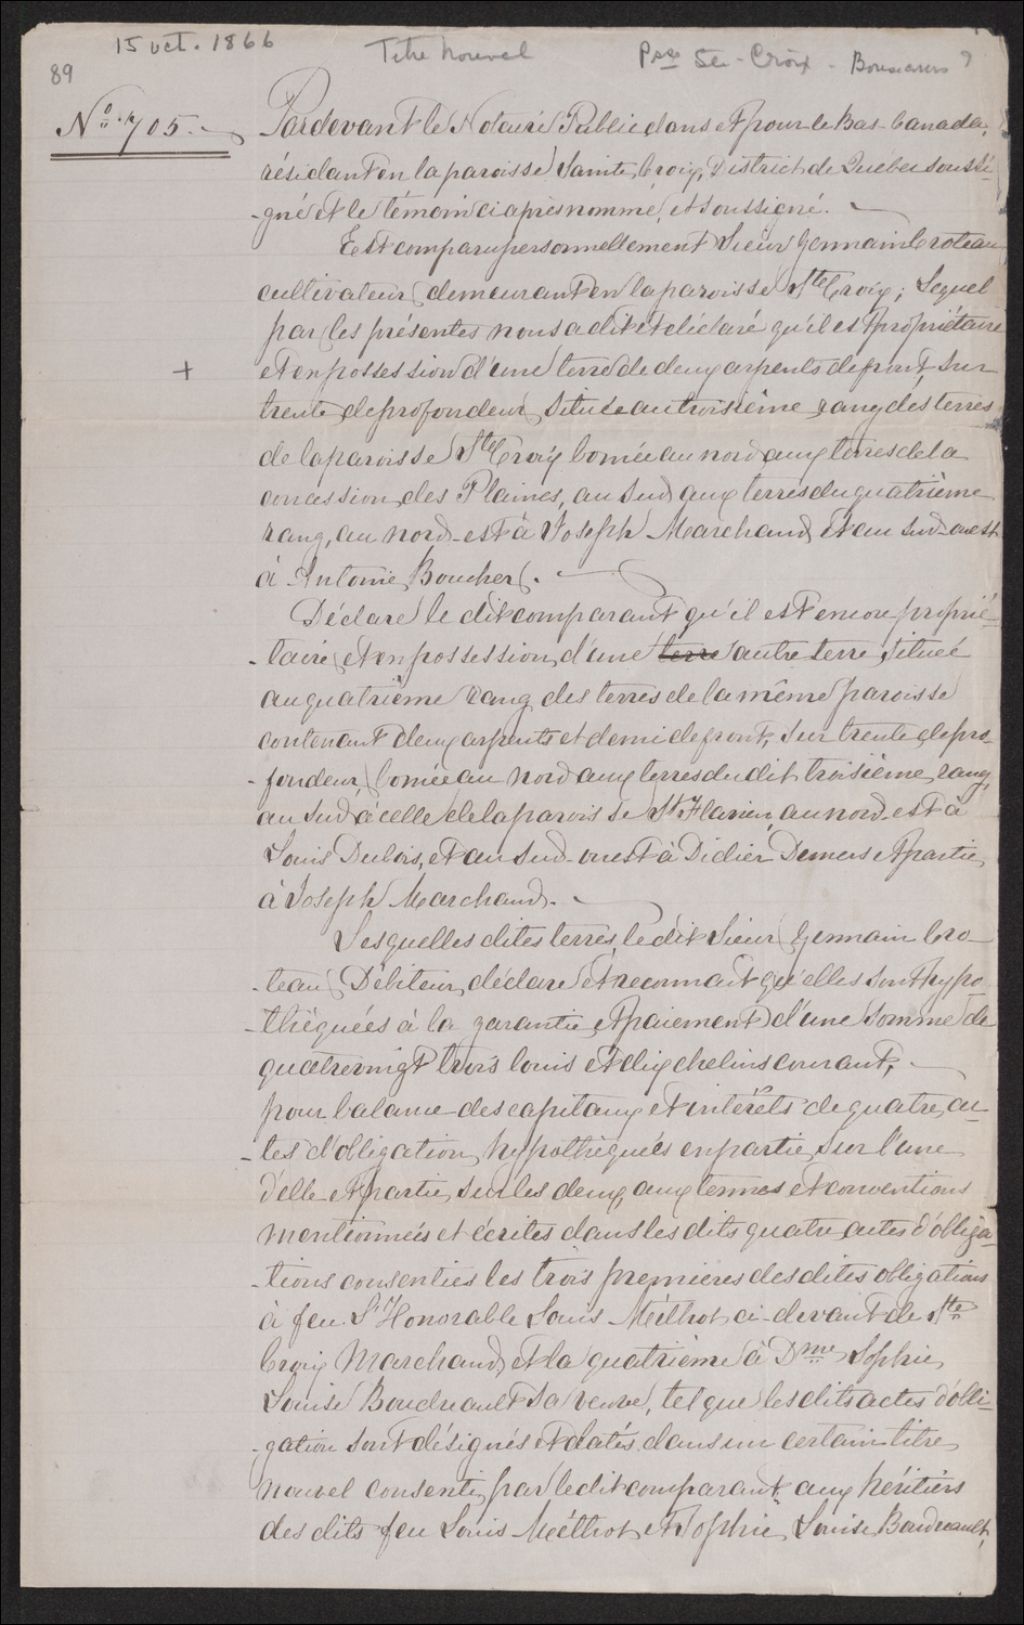 15 oct. 1866 Titre nouvel Psse Ste-Croix -
89
No. 705. Pardevant le Notaire Public dans et pour le Bas-Canada,
résidant en la paroisse Sainte Croix, District de Québec soussi-
-gné et le témoin ci après nommé, et soussigné.
Est comparu personnellement Sieur Germain Croteau
cultivateur demeurant en la paroisse Ste Croix; Lequel
par les présentes nous a dit et déclaré qu'il est propriétaire
+ et en possession d'une terre de deux arpents de front, sur
trente de profondeur, située au troisième rang des terres
de la paroisse Ste Croix bornée au nord aux terres de la
concession des Plaines, au sud aux terres du quatrième
rang, au nord-est à Joseph Marchand, et au sud-ouest
à Antoine Boucher.
Déclare le dit comparant qu'il est encore proprié-
-taire et en possession d'une terre autre terre située
au quatrième rang des terres de la même paroisse
contenant deux arpents et demi de front, sur trente de pro-
-fondeur, bornée au nord aux terres du dit troisième rang,
au sud à celle de la paroisse St Flavien, au nord-est à
Louis Dubois, et au sud-ouest à Didier Demers et partie
à Joseph Marchand.
Lesquelles dites terres, le dit Sieur Germain Cro-
-teau Débiteur, déclare et reconnait qu'elles sont hypo
-théquées à la garantie et paiement d'une somme de
quatrevingt trois louis et dix chelins courant,
pour balance des capitaux et intérêts de quatre ac-
-tes d'obligation, hypothéqués en partie sur l'une
d'elle et partie sur les deux, aux termes et conventions
mentionnées et écrites dans les dits quatre actes d'obliga-
-tions consenties les trois premières des dites obligations
à feu L'Honorable Louis Méthot ci-devant de Ste
Croix Marchand, et la quatrième à Dme Sophie
Louise Boudreault sa veuve, tel que les dits actes d'obli-
-gation sont désignés et datés dans un certain titre
nouvel consenti par le dit comparant aux héritiers
des dits feu Louis Méthot et Sophie Louise Boudreault,